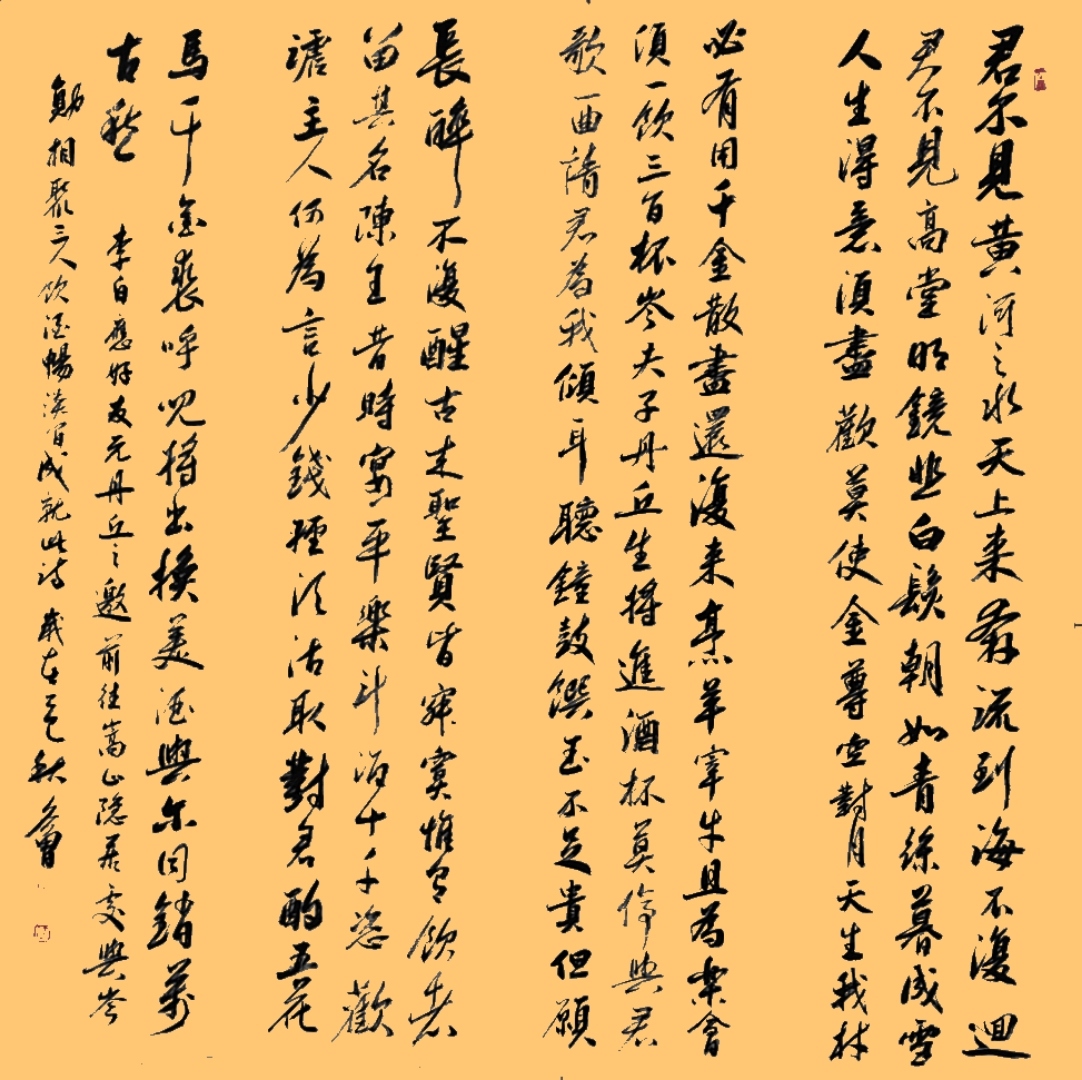 君不見黃河之水天上來奔流到海不復迴
君不見高堂明鏡悲白髮朝如青絲暮成雪
人生得意須盡歡莫使金尊空對月天生我材
必有用千金散盡還復來烹羊宰牛且為樂會
須一飲三百杯岑夫子丹丘生將進酒杯莫停與君
歌一曲請君為我傾耳聽鐘鼓饌玉不足貴但願
長醉不復醒古來聖賢皆寂寞惟有飲者
留其名陳王昔時宴平樂斗酒十千恣歡
謔主人何為言少錢徑須沽取對君酌五花
馬千金裘呼兒將出換美酒與尔同銷萬
古愁 李白應好友元丹丘之邀前往嵩山隱居處與岑
勛相聚三人飲酒暢談寫成就此詩 歲在乙巳秋